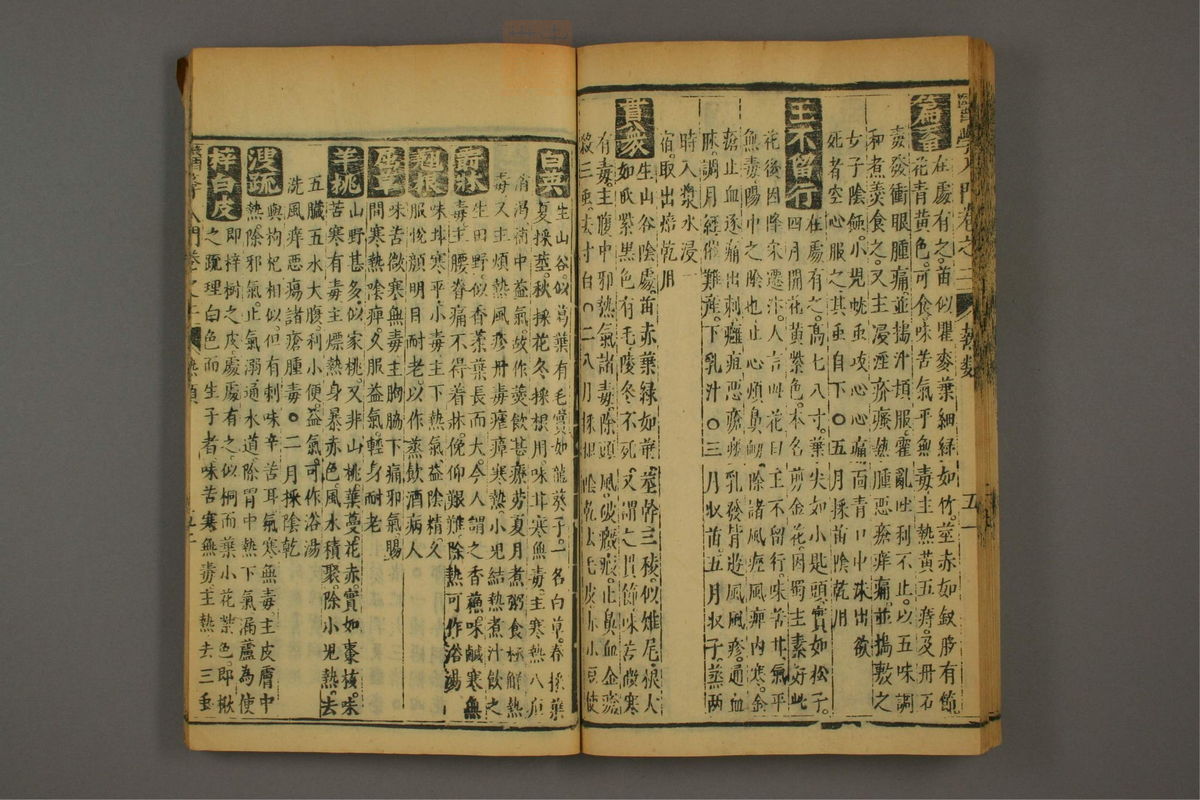 萹蓄在處有之苗似瞿麥葉細綠如竹莖赤如釵股有節
花青黃色可食味苦氣平無毒主熱黃五痔及丹石
毒發衝眼腫痛並搗汁頓服霍亂吐利不止以五味調
和煮羮食之又主浸淫疥瘙熱腫惡瘡痒痛並搗敷之
女子陰蝕小兒蚘虫攻心心痛面青口中沫出欲
死者空心服之其虫自下○五月採苗陰乾用
王不留行在處有之高七八寸葉尖如小匙頭實如松子
四月開花黃紫色本名剪金花因蜀主素好此
花後因降宋遷汴人言此花曰王不留行味苦甘氣平
無毒陽中之陰也止心煩鼻衄除諸風痙風痺內寒金
瘡止血逐痛出刺癰疽惡瘡瘀乳發背遊風風疹通血
脉調月經催難產下乳汁○三月收苗五月收子蒸兩
時入漿水浸一
宿取出焙乾用
貫衆生山谷陰處苗赤葉綠如蕨莖幹三稜似雉尾根大
如瓜紫黑色有毛凌冬不死又謂之貫節味苦微寒
有毒主腹中邪熱氣諸毒除頭風破癥瘕止鼻血金瘡
殺三蟲去寸白○二八月採根陰乾去毛皮赤小豆使
白英生山谷似蔦葉有毛實如龍葵子一名白草春採葉
夏採莖秋採花冬採根用味甘寒無毒主寒熱八疸
消渴補中益氣或作羮飲甚療勞夏月煮粥食極解熱
毒又主煩熱風疹丹毒瘧瘴寒熱小兒結熱煮汁飲之
爵牀生田野似香葇葉長而大今人謂之香蘓味鹹寒無
毒主腰脊痛不得着牀俛仰艱難除熱可作浴湯
翹根味甘寒平小毒主下熱氣益陰精久
服悅顏明目耐老以作蒸飲酒病人
屈草味苦微寒無毒主胸脇下痛邪氣腸
間寒熱陰痺久服益氣輕身耐老
羊桃山野甚多似家桃又非山桃葉蔓花赤實如棗核味
苦寒有毒主熛熱身暴赤色風水積聚除小兒熱去
五臟五水大腹利小便益氣可作浴湯
洗風痒惡瘍諸瘡腫毒○二月採陰乾
溲疏與枸杞相似但有刺味辛苦耳氣寒無毒主皮膚中
熱除邪氣止氣溺通水道除胃中熱下氣漏蘆為使
梓白皮即梓樹之皮處處有之似桐而葉小花紫色即楸
之疏理白色而生子者味苦寒無毒主熱去三蟲